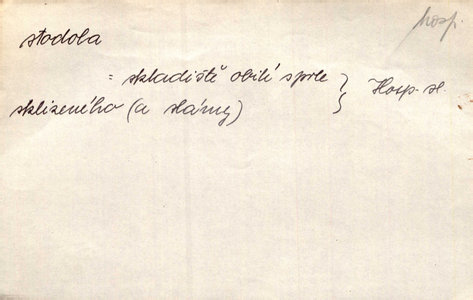 hosp.
stodola
= skladiště obilí sotva
sklizeného (a slámy) } Hosp. sl.